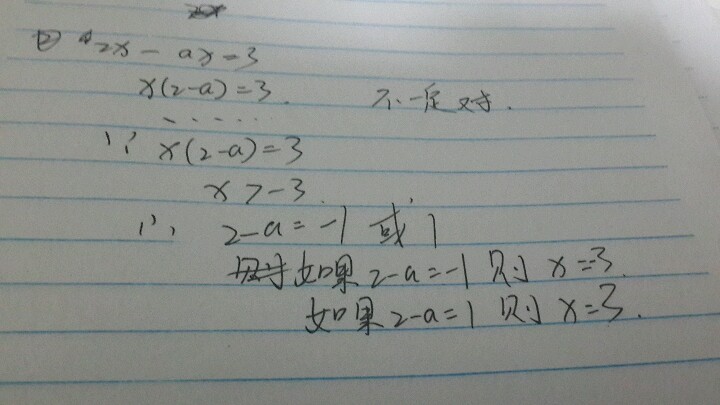 ② 2x - ax = 3
x(2-a) = 3. 不一定对.
......
∵ x(2-a) = 3
x > -3.
∴ 2-a = -1 或 1
如果 2-a = -1 则 x = -3.
如果 2-a = 1 则 x = 3.